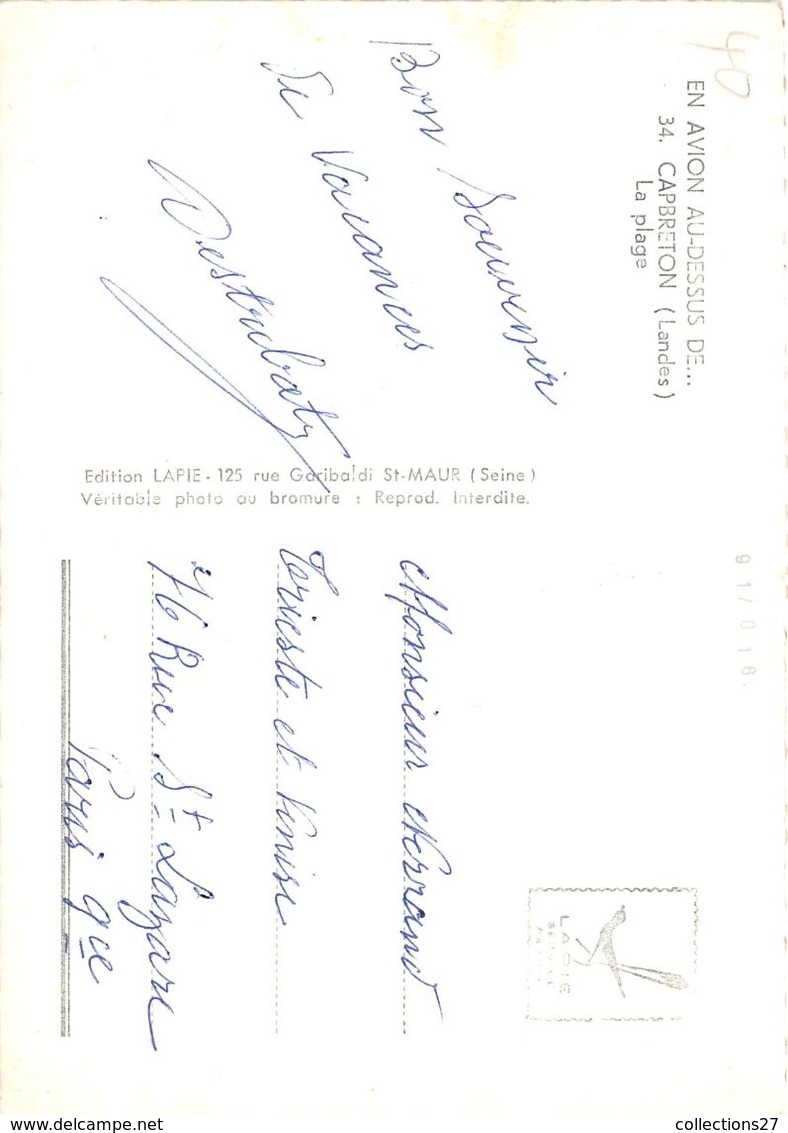 40
EN AVION AU-DESSUS DE...
34. CAPBRETON (Landes)
La plage
Bon Souvenir
de Vacances
Edition LAPIE - 125 rue Garibaldi St-MAUR (Seine)
Véritable photo au bromure : Reprod. Interdite.
91/016.
LAPIE
Monsieur
Trieste et Venise
76 Rue St Lazare
Paris 9me
collections27